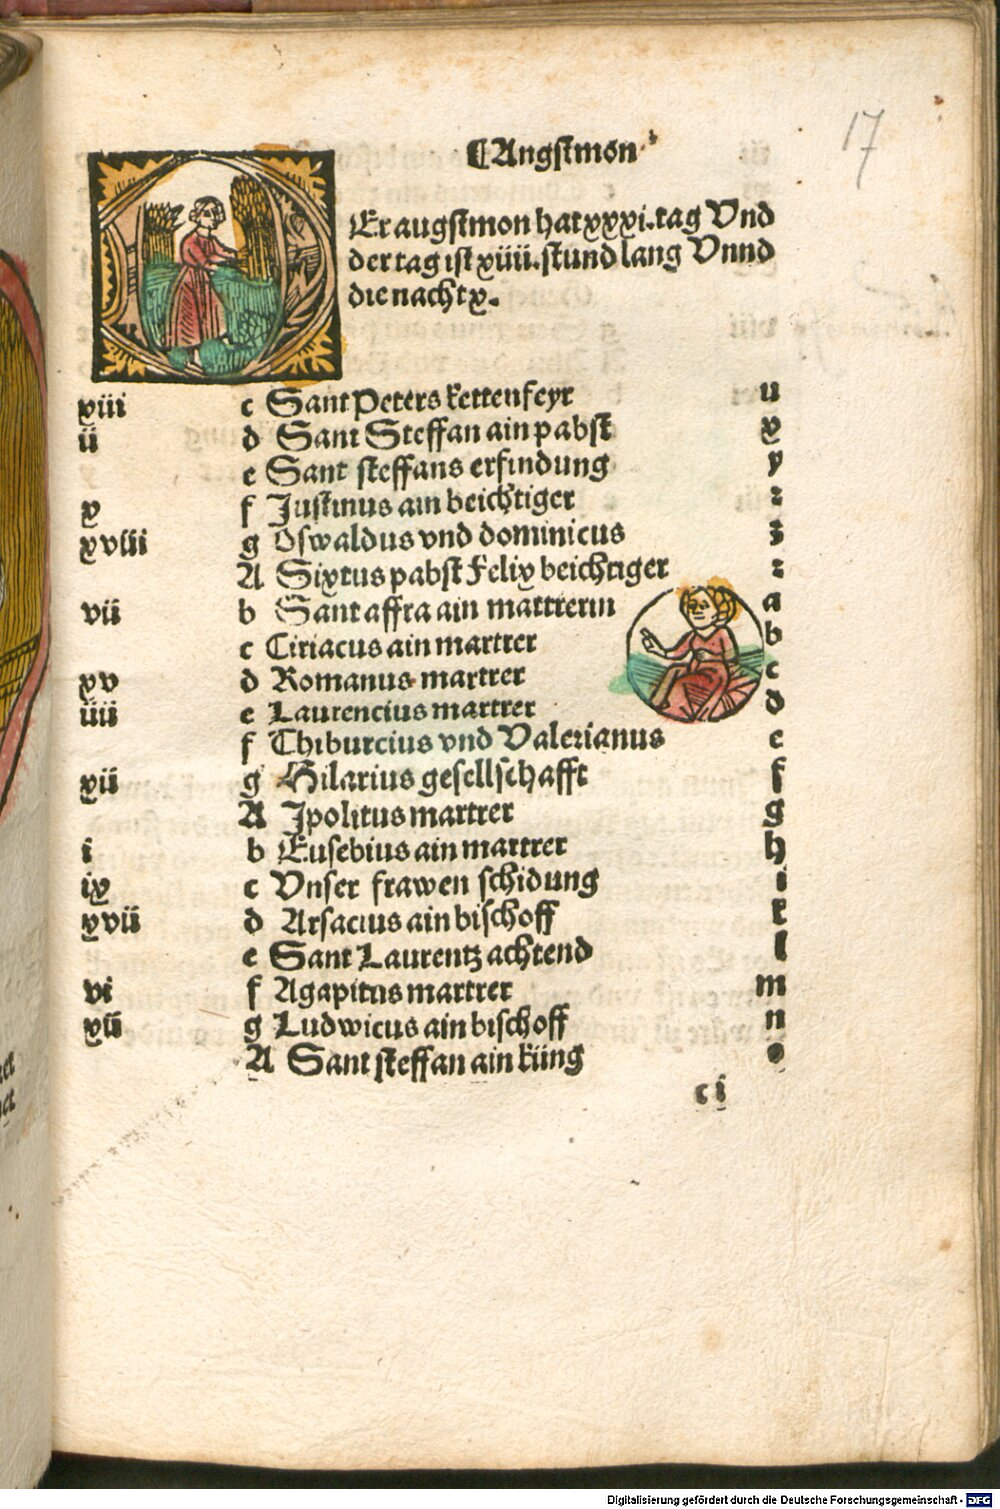 17
⸿Augstmon
Er augstmon hat xxxi. tag Vnd
der tag ist xiiii. stund lang Vnnd
die nacht x.
viii c Sant Peters kettenfeyr u
ii d Sant Steffan ain pabst x
e Sant steffans erfindung y
x f Justinus ain beichtiger z
xviii g Oswaldus vnd dominicus
A Sixtus pabst Felix beichtiger
vii b Sant affra ain martrerin a
c Ciriacus ain martrer b
xv d Romanus martrer c
iiii e Laurencius martrer d
f Thiburcius vnd Valerianus e
xii g Hilarius gesellschafft f
A Ipolitus martrer g
i b Eusebius ain martrer h
ix c Vnser frawen schidung i
xvii d Arsacius ain bischoff k
e Sant Laurentz achtend l
vi f Agapitus martrer m
xiiii g Ludwicus ain bischoff n
A Sant steffan ain küng o
c i
Digitalisierung gefördert durch die Deutsche Forschungsgemeinschaft - DFG